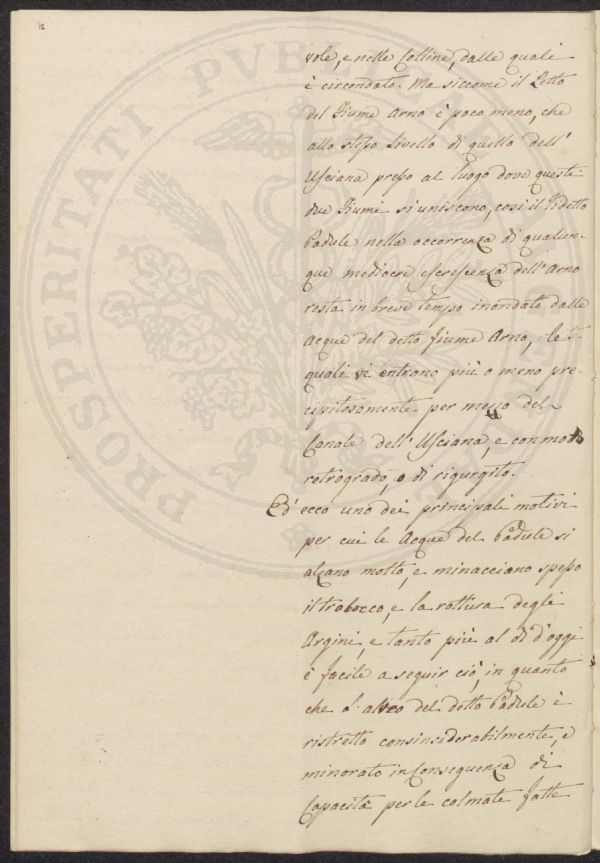 vole, e nelle Colline, dalle quali
è circondato. Ma siccome il Letto
del Fiume Arno è poco meno, che
allo stesso livello di quello dell'
Usciana preso al luogo dove questi
due Fiumi si uniscono, così il
Padule nella occorrenza di qualun-
que mediocre escrescenza dell'Arno
resta in breve tempo inondato dalle
Acque del detto fiume Arno, le
quali vi entrano più o meno pre-
cipitosamente per mezzo del
Canale dell'Usciana, e con moto
retrogrado, o di rigurgito.
Ed' ecco uno dei principali motivi
per cui le Acque del Padule si
alzano molto, e minacciano spesso
il trabocco, e la rottura degli
Argini, e tanto più al dì d'oggi
è facile a seguir ciò, in quanto
che l'alveo del detto Padule è
ristretto consinsiderabilmente, e
minorato in Conseguenza di
Capacità per le colmate fatte
PROSPERITATI PUBLICAE